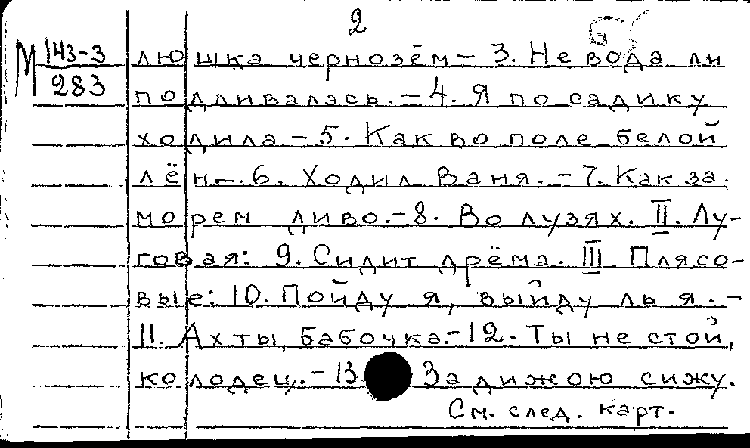 2
М 143-3 люшка чернозём – 3. Не вода ли
283 подливалась. – 4. Я по садику
ходила – 5. Как во поле белой
лён. – 6. Ходил Ваня. – 7. Как за
морем диво. – 8. Во лузях. II. Лу-
говая: 9. Сидит дрёма. III Плясо-
вые: 10. Пойду я, выйду ль я. –
11. Ах ты, бабочка. – 12. Ты не стой,
колодец. – 13 За дижою сижу.
См. след. карт.